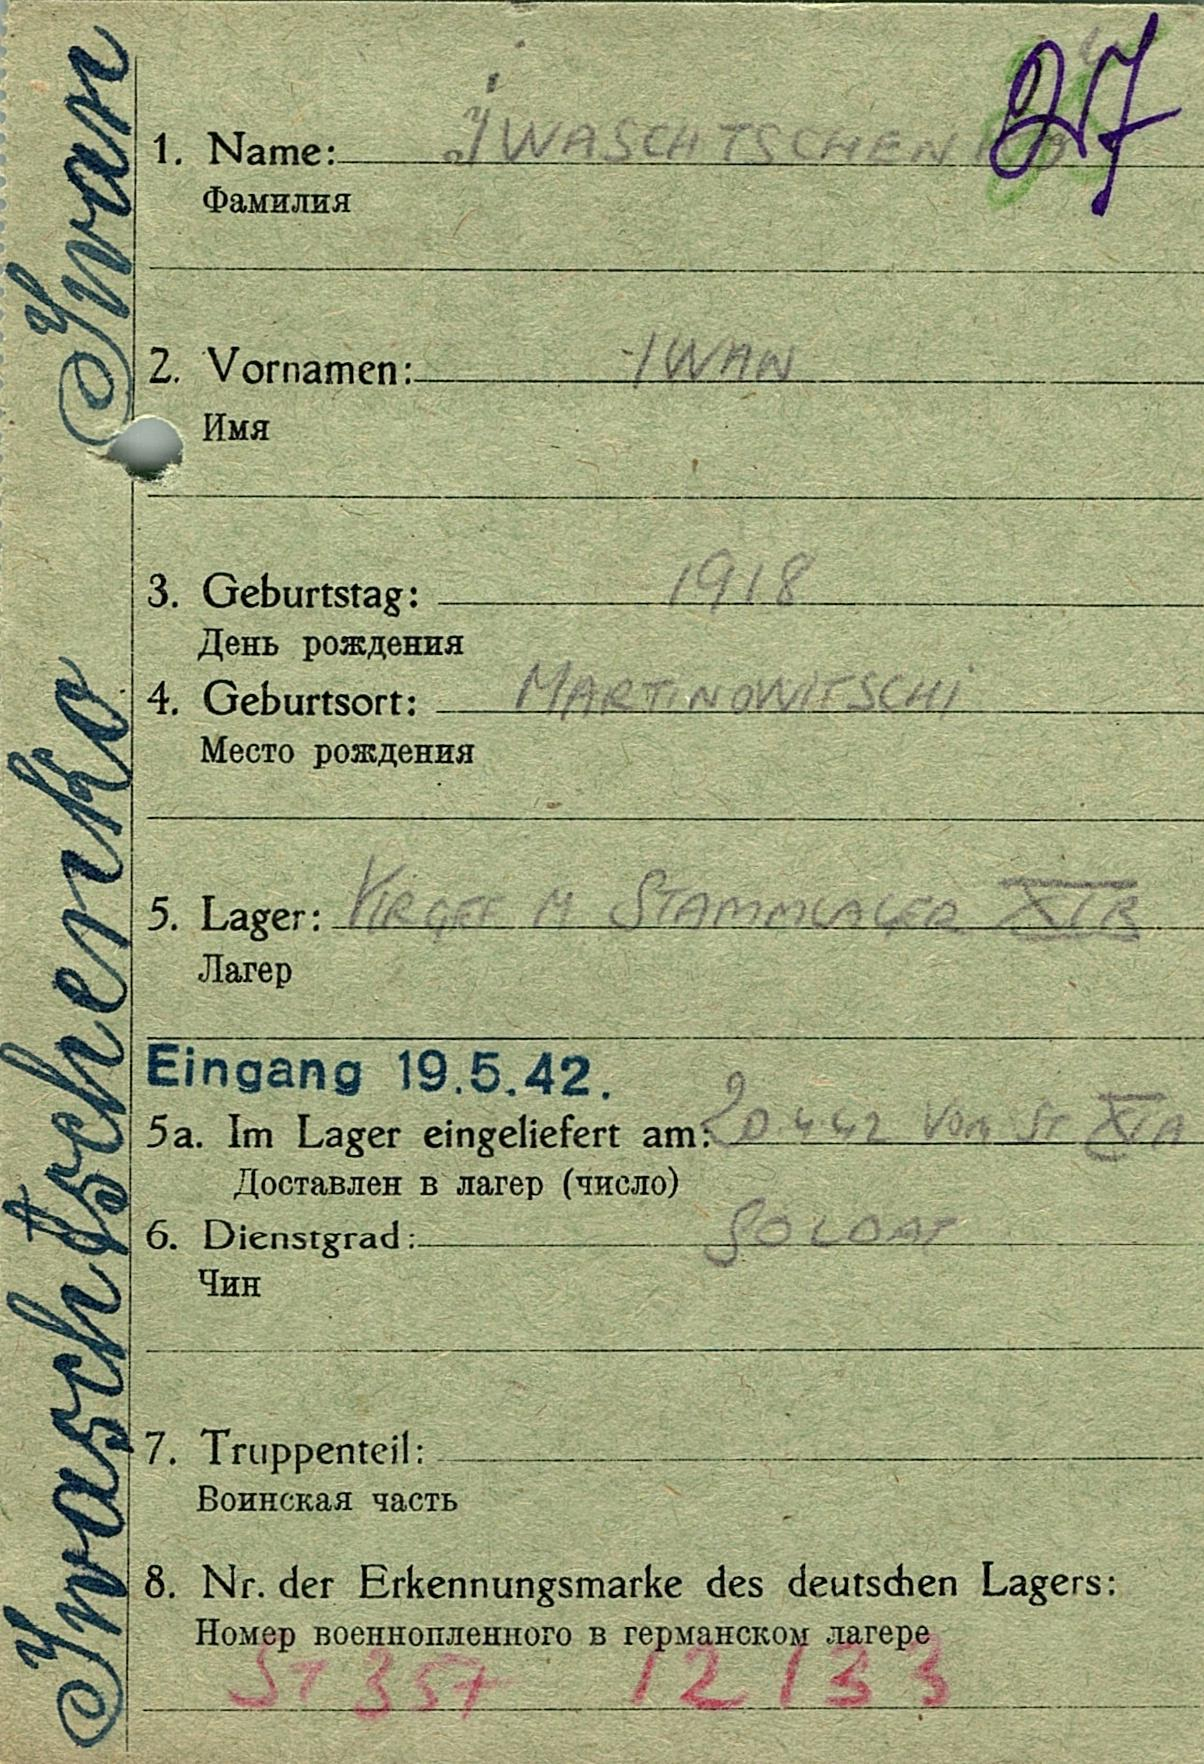 27
1. Name: IWASCHTSCHENKO
Фамилия
2. Vornamen: IWAN
Имя
3. Geburtstag: 1918
День рождения
4. Geburtsort: MARTINOWITSCHI
Место рождения
5. Lager: M STAMMLAGER XI B
Лагер
Eingang 19.5.42.
5a. Im Lager eingeliefert am: 20.4.42 VOM ST XI A
Доставлен в лагер (число)
6. Dienstgrad: SOLDAT
Чин
7. Truppenteil:
Воинская часть
8. Nr. der Erkennungsmarke des deutschen Lagers:
Номер военнопленного в германском лагере
ST 357 12133
Iwaschtschenko Iwan